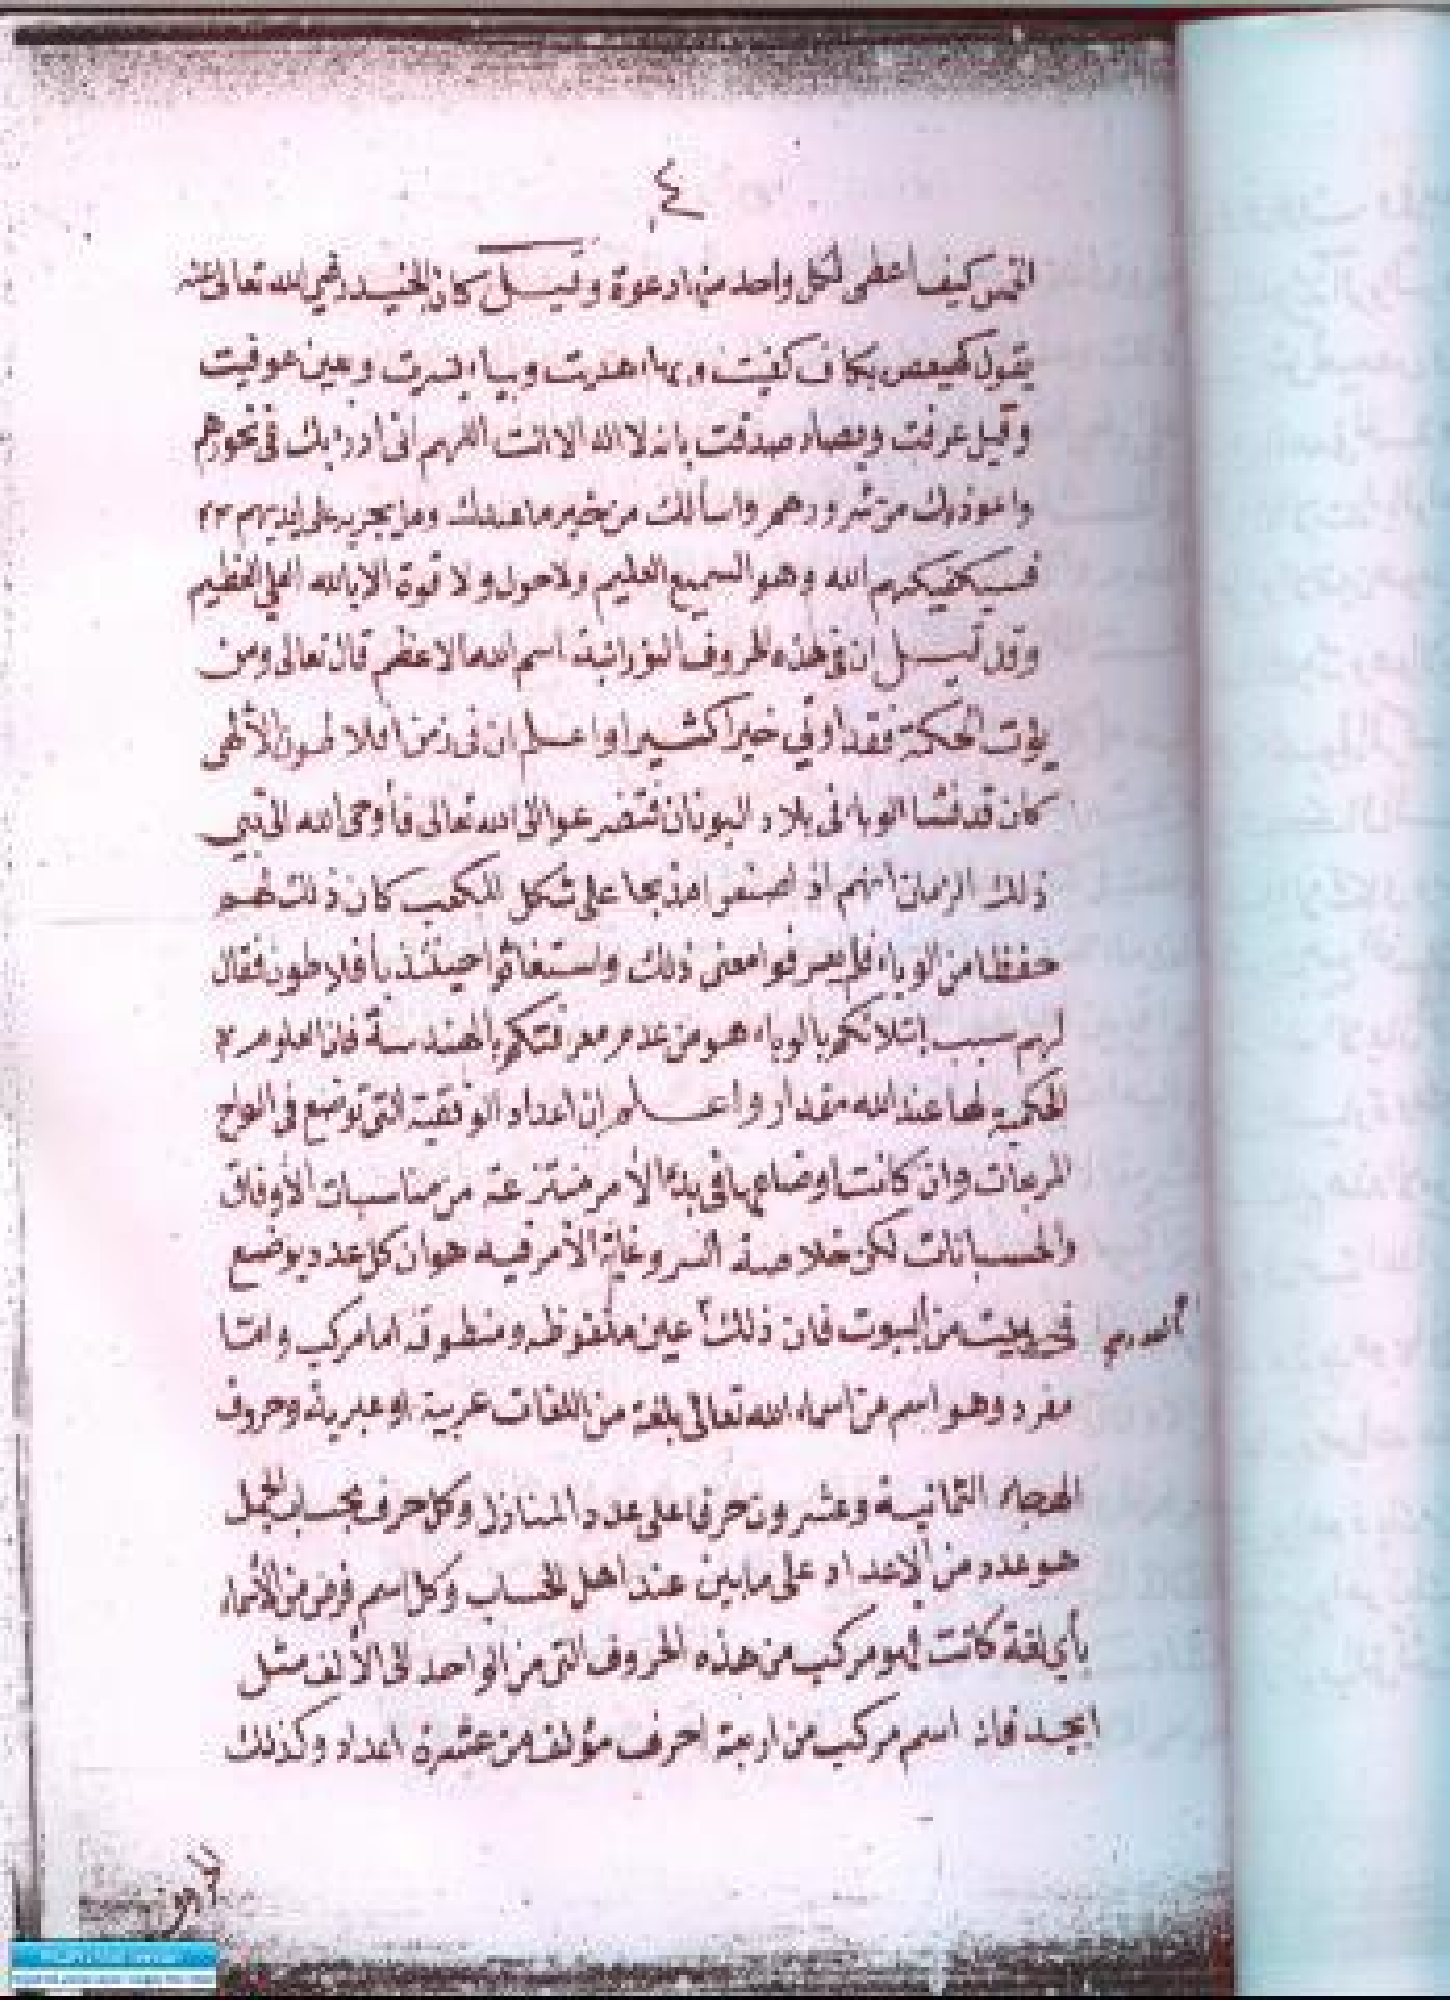 ٤
كيف اعطى لكل واحد منها دعوة وقيل كان الجنيد رضي الله تعالى عنه
يقول كهيعص بكاف كفيت وبهاء هديت وبياء يسرت وبعين عوفيت
وقيل عرفت وبصاد صدقت بانه لا اله الا انت اللهم انى ادرؤ بك فى نحورهم
واعوذ بك من شرورهم واسألك من خير ما عندك وما يجريه على ايديهم
فسيكفيكهم الله وهو السميع العليم ولاحول ولا قوة الا بالله العلي العظيم
وقد قيل ان فى هذه الحروف النورانية اسم الله الاعظم قال تعالى ومن
يؤت الحكمة فقد أوتي خيرا كثيرا واعلم ان فى زمن افلاطون الألهى
كان قد فشا الوباء فى بلاد اليونان فتضرعوا الى الله تعالى فأوحى الله الى نبي
ذلك الزمان انهم اذ مذبحا على شكل المكعب كان ذلك لهم
حفظا من الوباء فلم يعرفوا معنى ذلك واستغاثوا حينئذ بأفلاطون فقال
لهم سبب ابتلائكم بالوباء هو من عدم معرفتكم بالهندسة فان العلوم
الحكمية لها عند الله مقدار واعلم ان اعداد الوفقية التى توضع فى الواح
المربعات وان كانت اوضاعها فى بدء الأمر منتزعة من مناسبات الأوفاق
والحسبانات لكن خلاصة السر وغاية الأمر فيه هو ان كل عدد يوضع
فى بيت من البيوت فان ذلك عين ملفوظه ومنطوقه اما مركب واما
مفرد وهو اسم من اسماء الله تعالى بلغة من اللغات عربية او عبرية وحروف
الهجاء الثمانية وعشرون حرفا على عدد المنازل وكل حرف بحساب الجمل
هو عدد من الاعداد على ما بين عند اهل الحساب وكل اسم فرض من الأسماء
بأي لغة كانت فهو مركب من هذه الحروف التى من الواحد الى الألف مثل
ابجد فانه اسم مركب من اربعة احرف مؤلفه من عشرة اعداد وكذلك